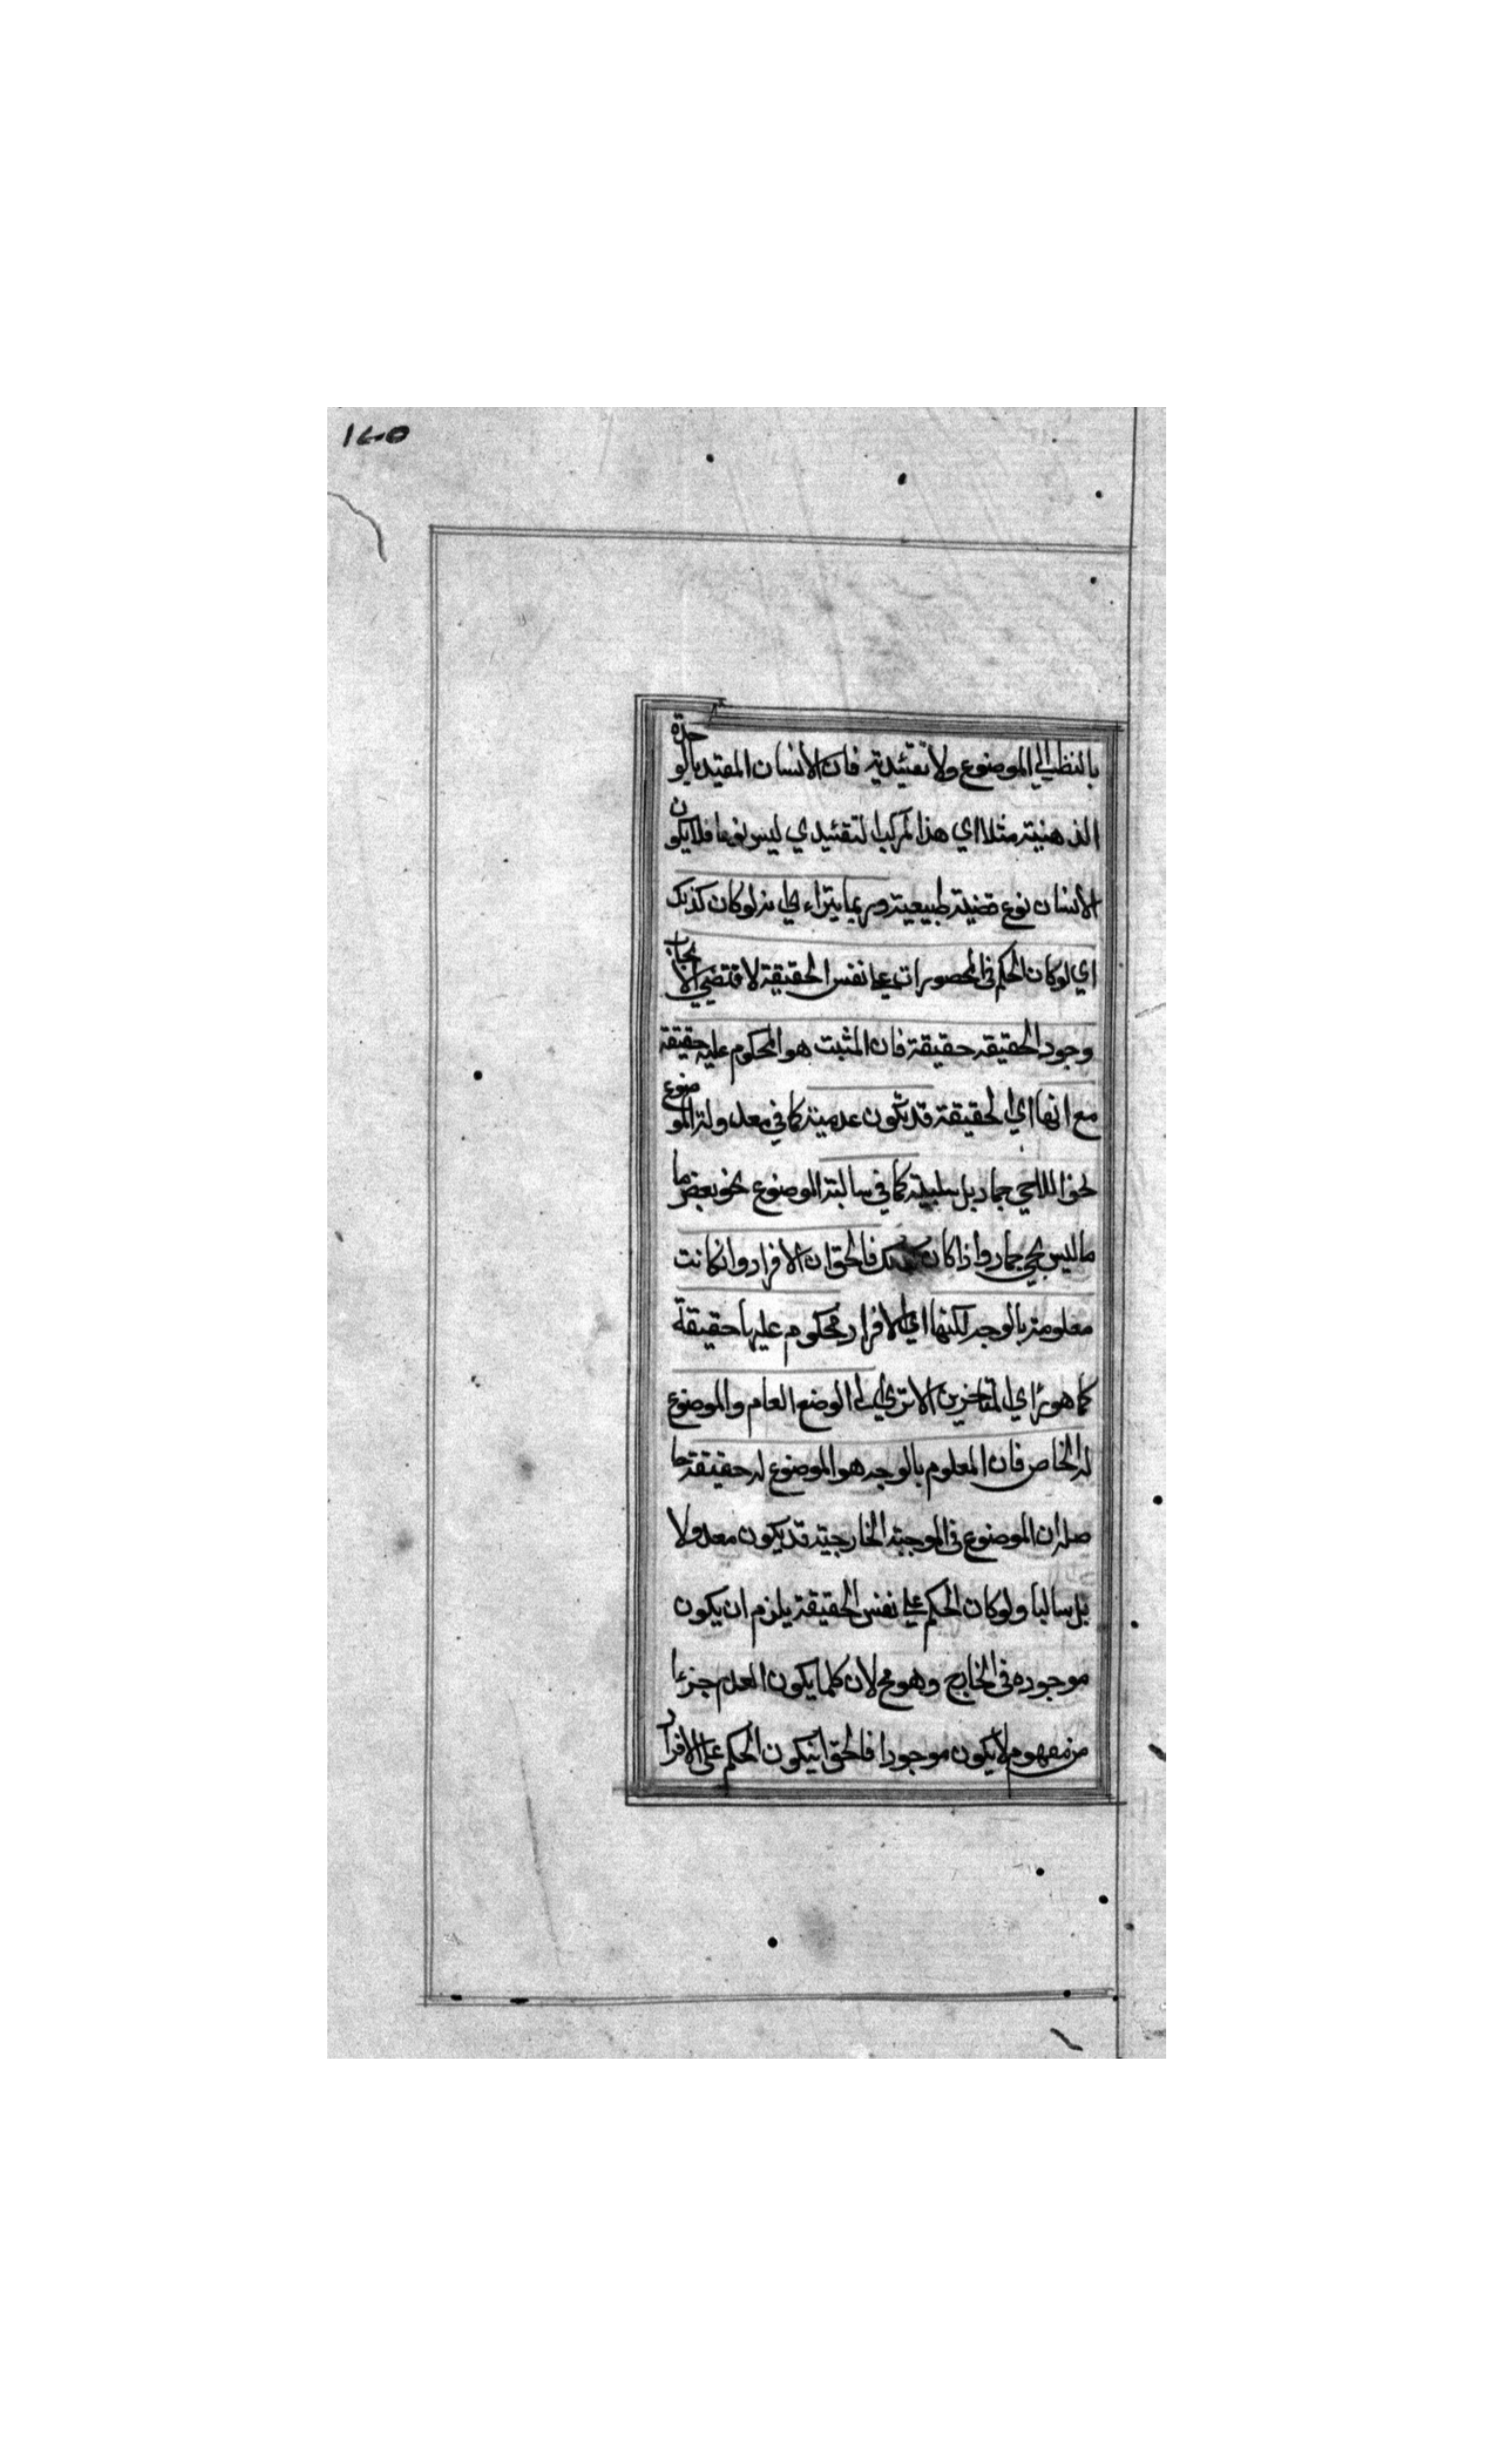 ١٤٥
بالنظر الي الموضوع ولا تقئيدية فان الانسان المقيد بالوحدة
الذهنية مثلا اي هذا المركب التقئيدي ليس نوعا فلا يكون
الانسان نوع قضية طبيعية وربما يتراءي انه لوكان كذلك
اي لوكان الحكم في المحصورات علي نفس الحقيقة لاقتضي الايجاب
وجود الحقيقة حقيقة فان المثبت هو المحكوم عليه حقيقة
مع انها اي الحقيقة قد تكون عدمية كما في معدولة الموضوع
نحو اللاحي جماد بل سلبية كما في سالبة الموضوع نحو بعض ما
ما ليس بحي جماد واذا كان كذلك فالحق ان الافراد وانكانت
معلومة بالوجه لكنها اي الافراد محكوم عليها حقيقة
كما هو راي المتاخرين الا تري الي الوضع العام والموضوع
له الخاص فان المعلوم بالوجه هو الموضوع له حقيقة حا
صله ان الموضوع في الموجبة الخارجية قد يكون معدولا
بل سالبا ولوكان الحكم علي نفس الحقيقة يلزم ان يكون
موجوده في الخارج وهو مح لان كلما يكون العدم جزءا
من مفهوم لا يكون موجودا فالحق انيكون الحكم علي الافراد